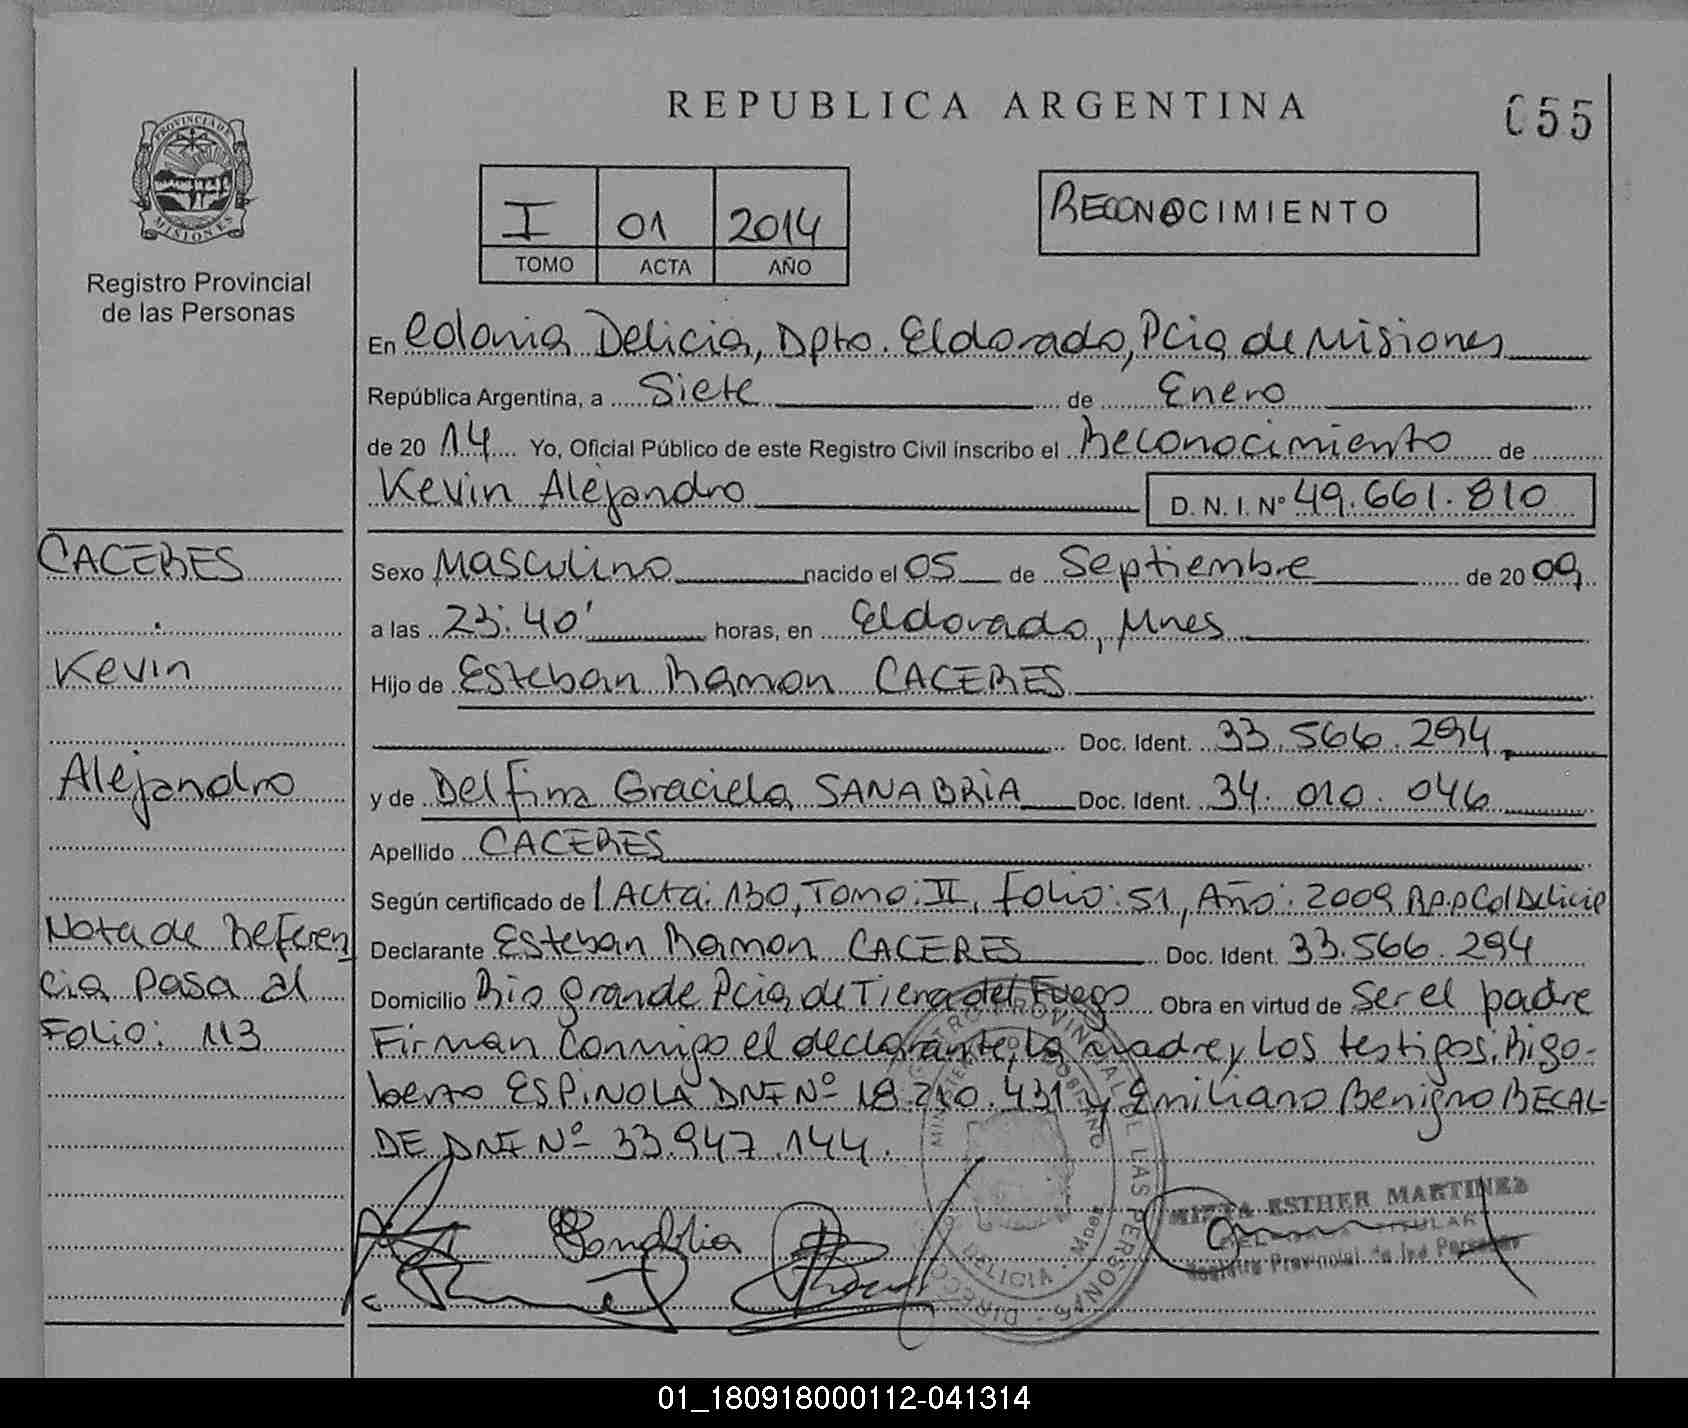 REPUBLICA ARGENTINA
055
PROVINCIA DE
MISIONES
Registro Provincial
de las Personas
I 01 2014
TOMO ACTA AÑO
RECONOCIMIENTO
En Colonia Delicia, Dpto. Eldorado, Pcia de Misiones
República Argentina, a Siete de Enero
de 2014 Yo, Oficial Público de este Registro Civil inscribo el Reconocimiento de
Kevin Alejandro D. N. I. Nº 49.661.810
Sexo Masculino nacido el 05 de Septiembre de 2009
a las 23:40' horas, en Eldorado, Mnes
Hijo de Esteban Ramon CACERES
Doc. Ident. 33.566.294
y de Delfina Graciela SANABRIA Doc. Ident. 34.010.046
Apellido CACERES
Según certificado de Acta: 130, Tomo: II, Folio: 51, Año: 2009 R.P.P Col Delicia
Declarante Esteban Ramon CACERES Doc. Ident. 33.566.294
Domicilio Rio Grande Pcia de Tierra del Fuego Obra en virtud de Ser el padre
Firman Conmigo el declarante, la madre y Los testigos. Rigo-
berto ESPINOLA DNI Nº 18.210.431 y Emiliano Benigno RECAL-
DE DNI Nº 33.947.144.
CACERES
Kevin
Alejandro
Nota de Referen
cia Pasa al
Folio: 113
MIRTA ESTHER MARTINEZ
DELEGADA TITULAR
Registro Provincial de las Personas
01_180918000112-041314